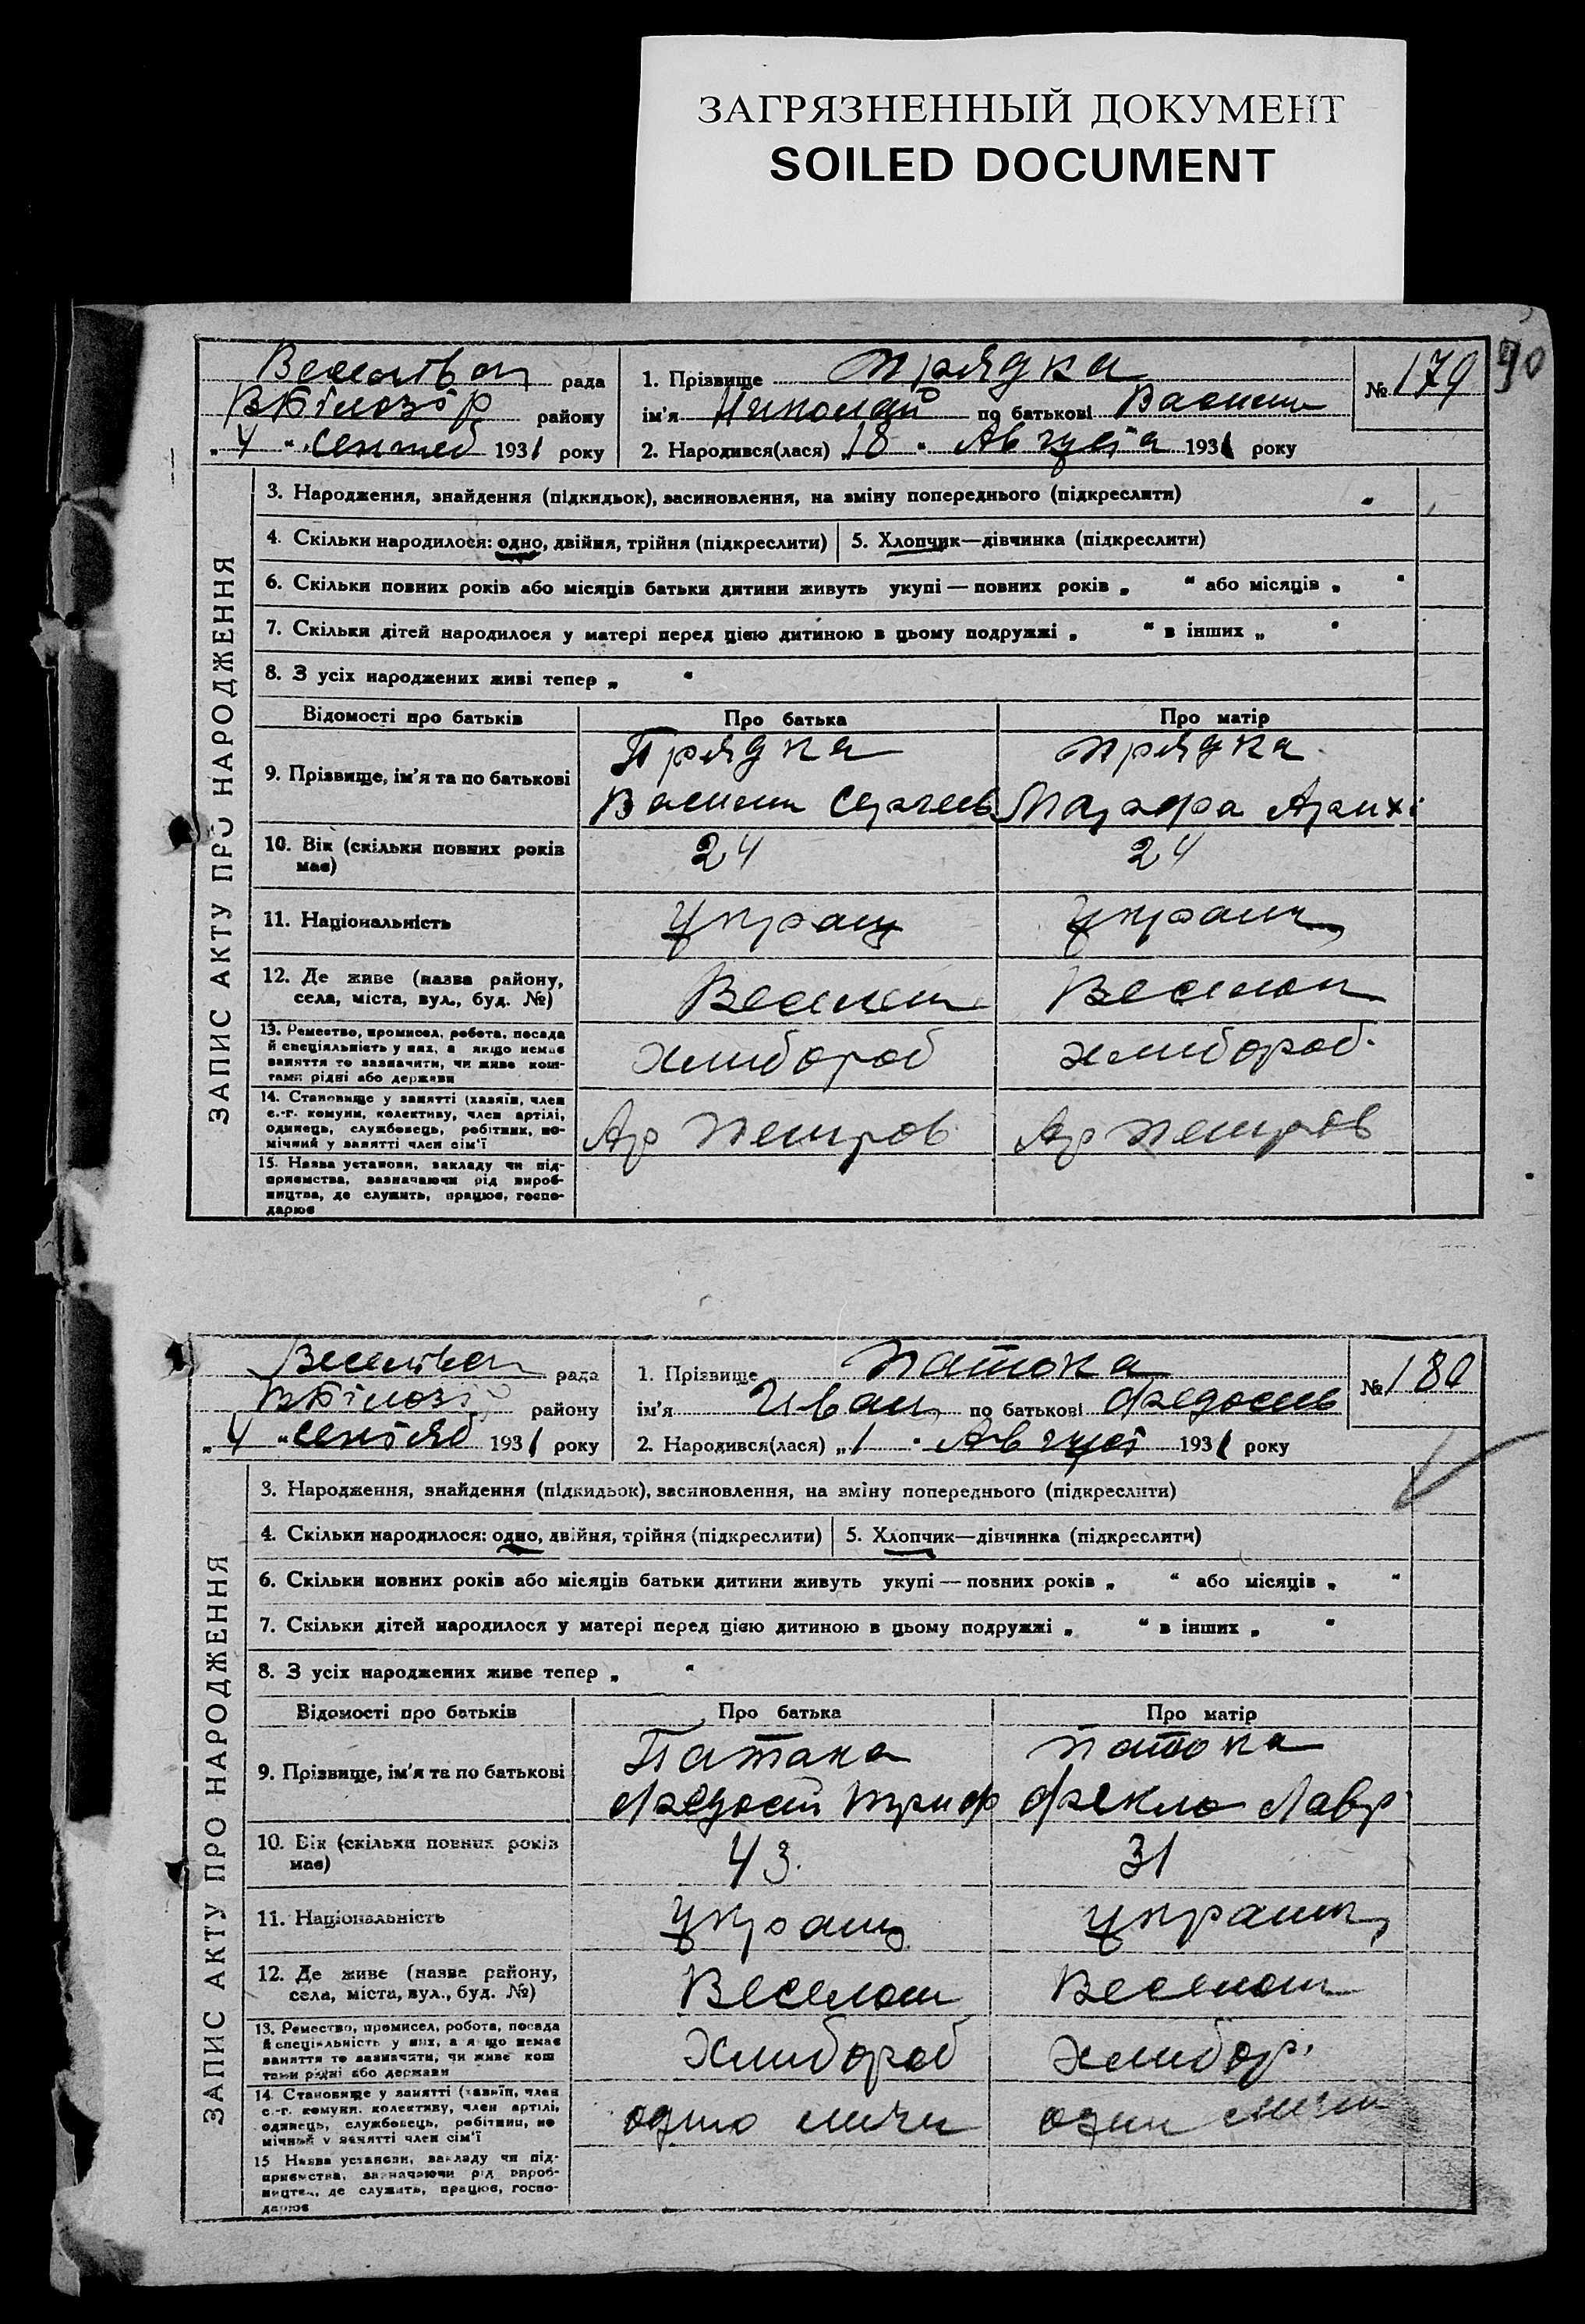 ЗАГРЯЗНЕННЫЙ ДОКУМЕНТ
SOILED DOCUMENT
90
рада
району
„ 4 “ 1931 року
1. Прізвище Прядка
ім'я Николай по батькові Васили
2. Народився(лася) „18 “ Августа 1931 року
№ 179
ЗАПИС АКТУ ПРО НАРОДЖЕННЯ
3. Народження, знайдення (підкидьок), засиновлення, на зміну попереднього (підкреслити)
4. Скільки народилося: одно, двійня, трійня (підкреслити)
5. Хлопчик—дівчинка (підкреслити)
6. Скільки повних років або місяців батьки дитини живуть укупі — повних років „ “ або місяців „ “
7. Скільки дітей народилося у матері перед цією дитиною в цьому подружжі „ “ в інших „ “
8. З усіх народжених живі тепер „ “
Відомості про батьків
Про батька
Про матір
9. Прізвище, ім'я та по батькові
Прядка
Прядка
10. Вік (скільки повних років має)
24
24
11. Національність
Украин
Украин
12. Де живе (назва району, села, міста, вул., буд. №)
13. Ремество, промисел, робота, посада й спеціяльність у них, а якщо немає заняття то зазначити, чи живе коштами рідні або держави
хлибороб
хлибороб
14. Становище у занятті (хазяїн, член с.-г. комуни, колективу, член артілі, одинець, службовець, робітник, помічний у занятті член сім'ї
Ар Петров
Ар Петров
15. Назва установи, закладу чи підприємства, зазначаючи рід виробництва, де служить, працює, господарює
рада
району
„ 4 “ 1931 року
1. Прізвище Патока
ім'я Иван по батькові Федосев
2. Народився(лася) „1 “ Август 1931 року
№ 180
ЗАПИС АКТУ ПРО НАРОДЖЕННЯ
3. Народження, знайдення (підкидьок), засиновлення, на зміну попереднього (підкреслити)
4. Скільки народилося: одно, двійня, трійня (підкреслити)
5. Хлопчик—дівчинка (підкреслити)
6. Скільки повних років або місяців батьки дитини живуть укупі — повних років „ “ або місяців „ “
7. Скільки дітей народилося у матері перед цією дитиною в цьому подружжі „ “ в інших „ “
8. З усіх народжених живе тепер „ “
Відомості про батьків
Про батька
Про матір
9. Прізвище, ім'я та по батькові
Патока
Федосий Триф
Патока
Фекла Лавр
10. Вік (скільки повних років має)
43.
31
11. Національність
Украин
Украин
12. Де живе (назва району, села, міста, вул., буд. №)
13. Ремество, промисел, робота, посада й спеціяльність у них, а якщо немає заняття то зазначити, чи живе коштами рідні або держави
Хлибороб
хлибор.
14. Становище у занятті (хазяїн, член с.-г. комуни, колективу, член артілі, одинець, службовець, робітник, помічний у занятті член сім'ї
15 Назва установи, закладу чи підприємства, зазначаючи рід виробництва, де служить, працює, господарює